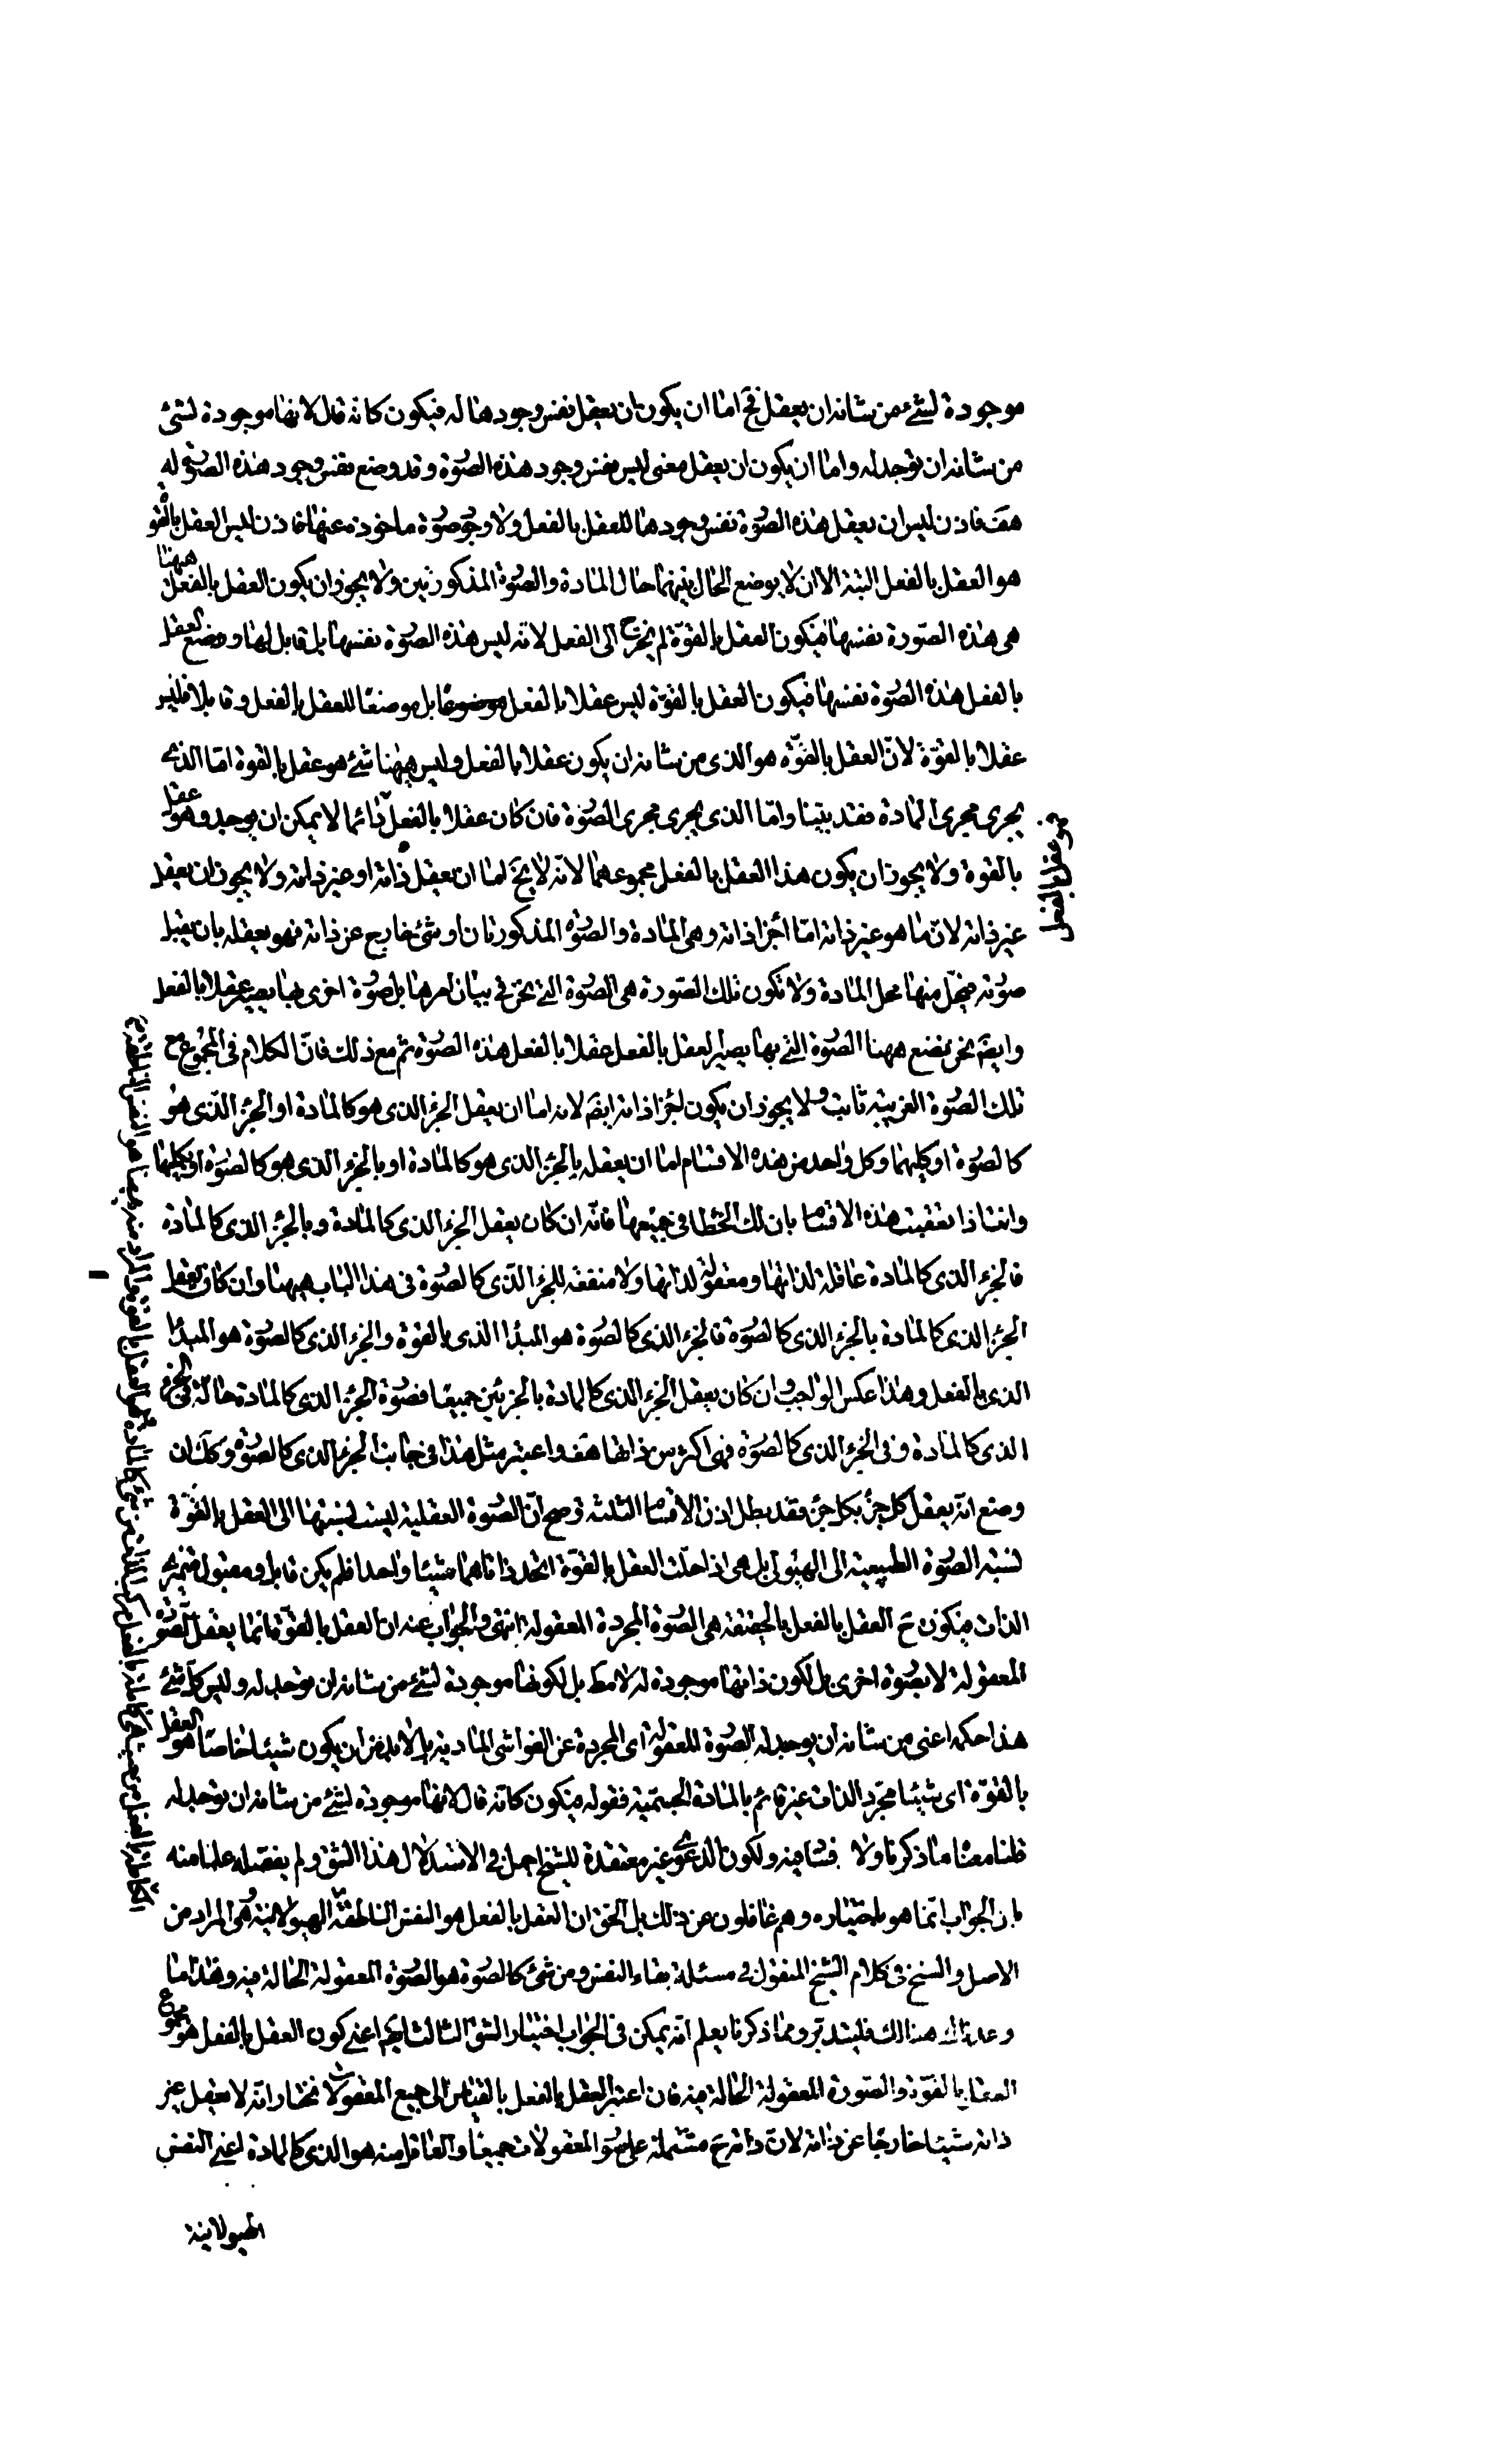 موجودة لشئ من شانه ان يعقل فح اما ان يكون ان يعقل نفس وجودها له فيكون كانه قال لانها موجودة لشئ
من شانه ان توجد له واما ان يكون ان يعقل معنى ليس نفس وجود هذه الصورة وقد وضع نفس وجود هذه الصورة له
هف فاذن ليس ان يعقل هذه الصورة نفس وجودها للعقل بالفعل ولا وجود صورة ماخوذة عنها فاذن ليس العقل بالقوة
هو العقل بالفعل البتة الا ان لا يوضع الحال بينهما حال المادة والصورة المذكورتين ولا يجوز ان يكون العقل بالفعل ههنا
هى هذه الصورة نفسها فيكون العقل بالقوة لم يخرج الى الفعل لانه ليس هذه الصورة نفسها بل قابل لها ووضع العقل
بالفعل هذه الصورة نفسها فيكون العقل بالقوة ليس عقلا بالفعل بل موضعا للعقل بالفعل وقابلا فليس
عقلا بالقوة لان العقل بالقوة هو الذى من شانه ان يكون عقلا بالفعل وليس ههنا شئ هو عقل بالقوة اما الذى
يجرى مجرى المادة فقد بينا واما الذى يجرى مجرى الصورة فان كان عقلا بالفعل دائما لا يمكن ان يوجد وهو عقل
فهو عقل بالفعل
بالقوة ولا يجوز ان يكون هذا العقل بالفعل مجموعهما لانه لا يخ اما ان يعقل ذاته او غير ذاته ولا يجوز ان يعقل
غير ذاته لان ما هو غير ذاته اما اجزا ذاته وهى المادة والصورة المذكورتان او شئ خارج عن ذاته فهو يعقله بان يقبل
صورته فيحل منها محل المادة ولا تكون تلك الصورة هى الصورة التى نحن فى بيان امرها بل صورة اخرى بها يصير عقلا بالفعل
وايضا نحن نضع ههنا الصورة التى بها يصير العقل بالفعل عقلا بالفعل هذه الصورة ثم مع ذلك فان الكلام فى المجموع مع
تلك الصورة الغريبة ثابت ولا يجوز ان يكون اجزا ذاته ايضا لانه اما ان يعقل الجزء الذى هو كالمادة او الجزء الذى هو
كالصورة او كليهما وكل واحد من هذه الاقسام اما ان يعقله بالجزء الذى هو كالمادة او بالجزء الذى هو كالصورة او بكليهما
وانت اذا تعقبت هذه الاقسام بان لك الخطا فى جميعها فانه ان كان يعقل الجزء الذى كالمادة وبالجزء الذى كالمادة
فالجزء الذى كالمادة عاقلة لذاتها ومعقولة لذاتها ولا منفعة للجزء الذى كالصورة فى هذا الباب ههنا وان كان يعقل
الجزء الذى كالمادة بالجزء الذى كالصورة فالجزء الذى كالصورة هو المبدا الذى بالقوة والجزء الذى كالصورة هو المبدا
الذى بالفعل وهذا عكس الواجب وان كان يعقل الجزء الذى كالمادة بالجزئين جميعا فصورة الجزء الذى كالمادة حالة فى الجزء
الذى كالمادة وفى الجزء الذى كالصورة فهى اكثر من ذاتها هف واعتبر مثل هذا فى جانب الجزء الذى كالصورة وكذلك ان
وضع انه يعقل كل جزء بكل جزء فقد بطل اذن الاقسام الثلثة وصح ان الصورة العقلية ليست نسبتها الى العقل بالقوة
نسبة الصورة الطبيعية الى الهيولى بل هى اذا حلت العقل بالقوة اتحد ذاتاهما شيئا واحدا فلم يكن قابل ومقبول متميزى
الذات فيكون ح العقل بالفعل بالحقيقة هى الصورة المجردة المعقولة انتهى والجواب عنه ان العقل بالقوة انما يعقل الصورة
المعقولة لا بصورة اخرى بل لكون ذاتها موجودة له لا مط بل لكونها موجودة لشئ من شانه ان توجد له وليس كل شئ
هذا حكمه اعنى من شانه ان يوجد له الصورة المعقولة اى المجردة عن الغواشى المادية بل لابد من ان يكون شيئا خاصا هو العقل
بالقوة اى شيئا مجرد الذات غير قائم بالمادة الجسمية فقوله فيكون كانه قال لانها موجودة لشئ من شانه ان توجد له
قلنا معنا ما ذكرنا ولا فساد فيه ولكون الدعوى غير معتقدة للشيخ اجمل فى الاستدلال هذا الشق ولم يفصله علما منه
بان الجواب انما هو باختياره وهم غافلون عن ذلك بل الحق ان العقل بالفعل هو النفس الناطقة الهيولانية وهى المراد من
الاصل والسنخ فى كلام الشيخ المنقول فى مسئلة بقاء النفس ومن شئ كالصورة هو الصورة المعقولة الحالة فيه وهذا ما
وعدناك هنالك فليتدبر ومما ذكرنا يعلم انه يمكن فى الجواب اختيار الشق الثالث ايضا اعنى كون العقل بالفعل هو مجموع
العقل بالقوة والصورة المعقولة الحالة فيه فان اعتبر العقل بالفعل بالقياس الى جميع المعقولات نختار انه لا يعقل غير
ذاته شيئا خارجا عن ذاته لان ذاته ح مشتملة على صور المعقولات جميعا والعاقل منه هو الذى كالمادة اعنى النفس
الهيولانية